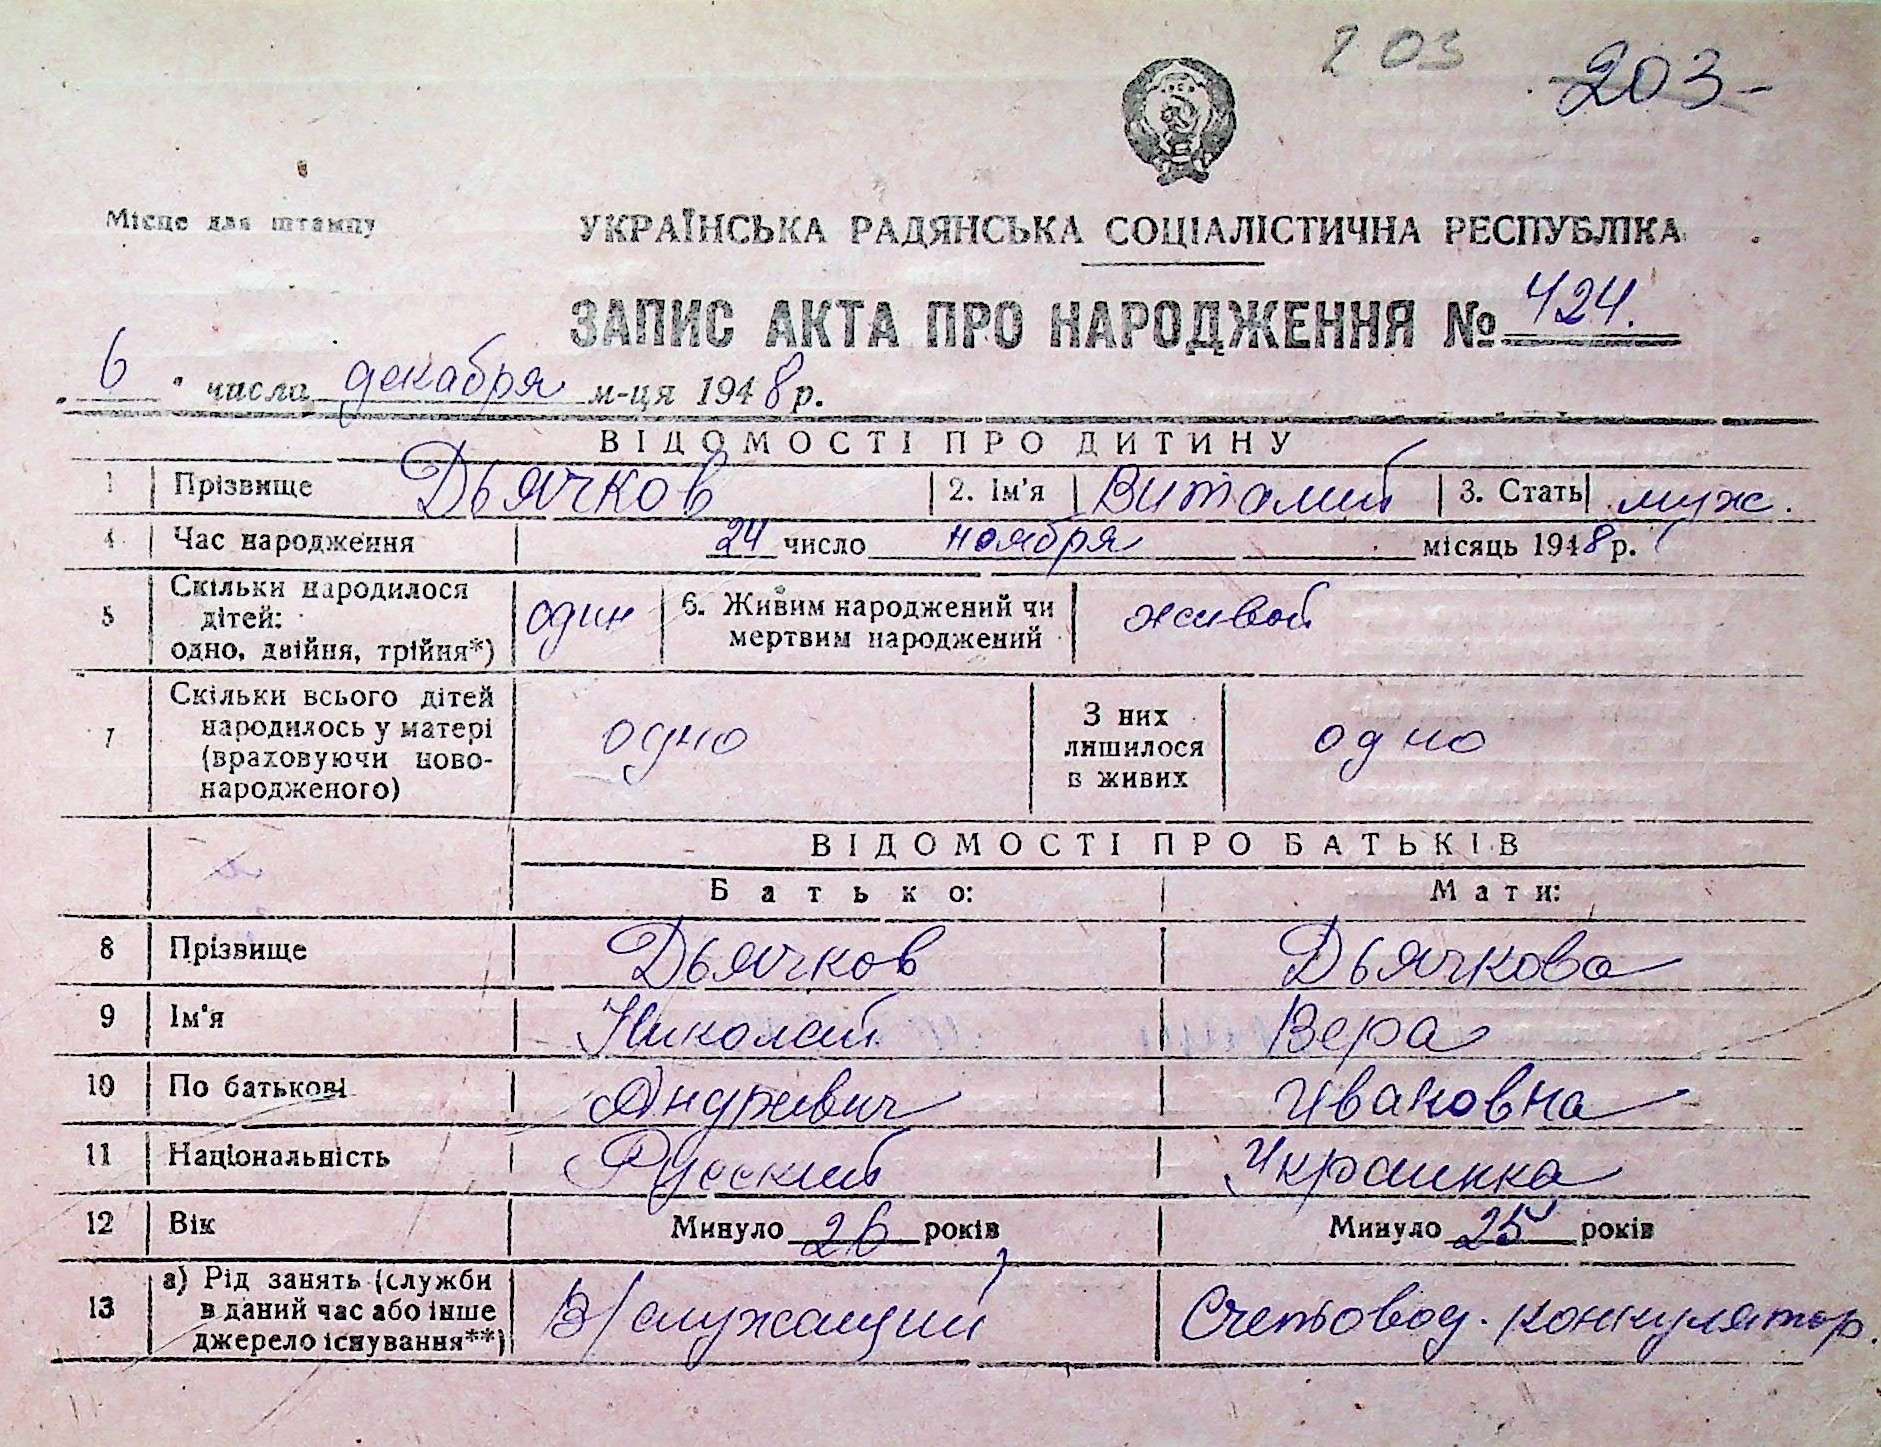 203 203-
Місце для штампу
УКРАЇНСЬКА РАДЯНСЬКА СОЦІАЛІСТИЧНА РЕСПУБЛІКА
ЗАПИС АКТА ПРО НАРОДЖЕННЯ № 424.
6 числа декабря м-ця 1948 р.
ВІДОМОСТІ ПРО ДИТИНУ
1 Прізвище Дьячков 2. Ім'я Виталий 3. Стать муж.
4 Час народження 24 число ноября місяць 1948 р.
5 Скільки народилося дітей: одно, двійня, трійня*) один 6. Живим народжений чи мертвим народжений живой
7 Скільки всього дітей народилось у матері (враховуючи ново-народженого) одно З них лишилося в живих одно
ВІДОМОСТІ ПРО БАТЬКІВ
Батько: Мати:
8 Прізвище Дьячков Дьячкова
9 Ім'я Николай Вера
10 По батькові Андревич Ивановна
11 Національність Русский Украинка
12 Вік Минуло 26 років Минуло 25 років
13 а) Рід занять (служби в даний час або інше джерело існування**) В/служащий Счетовод-